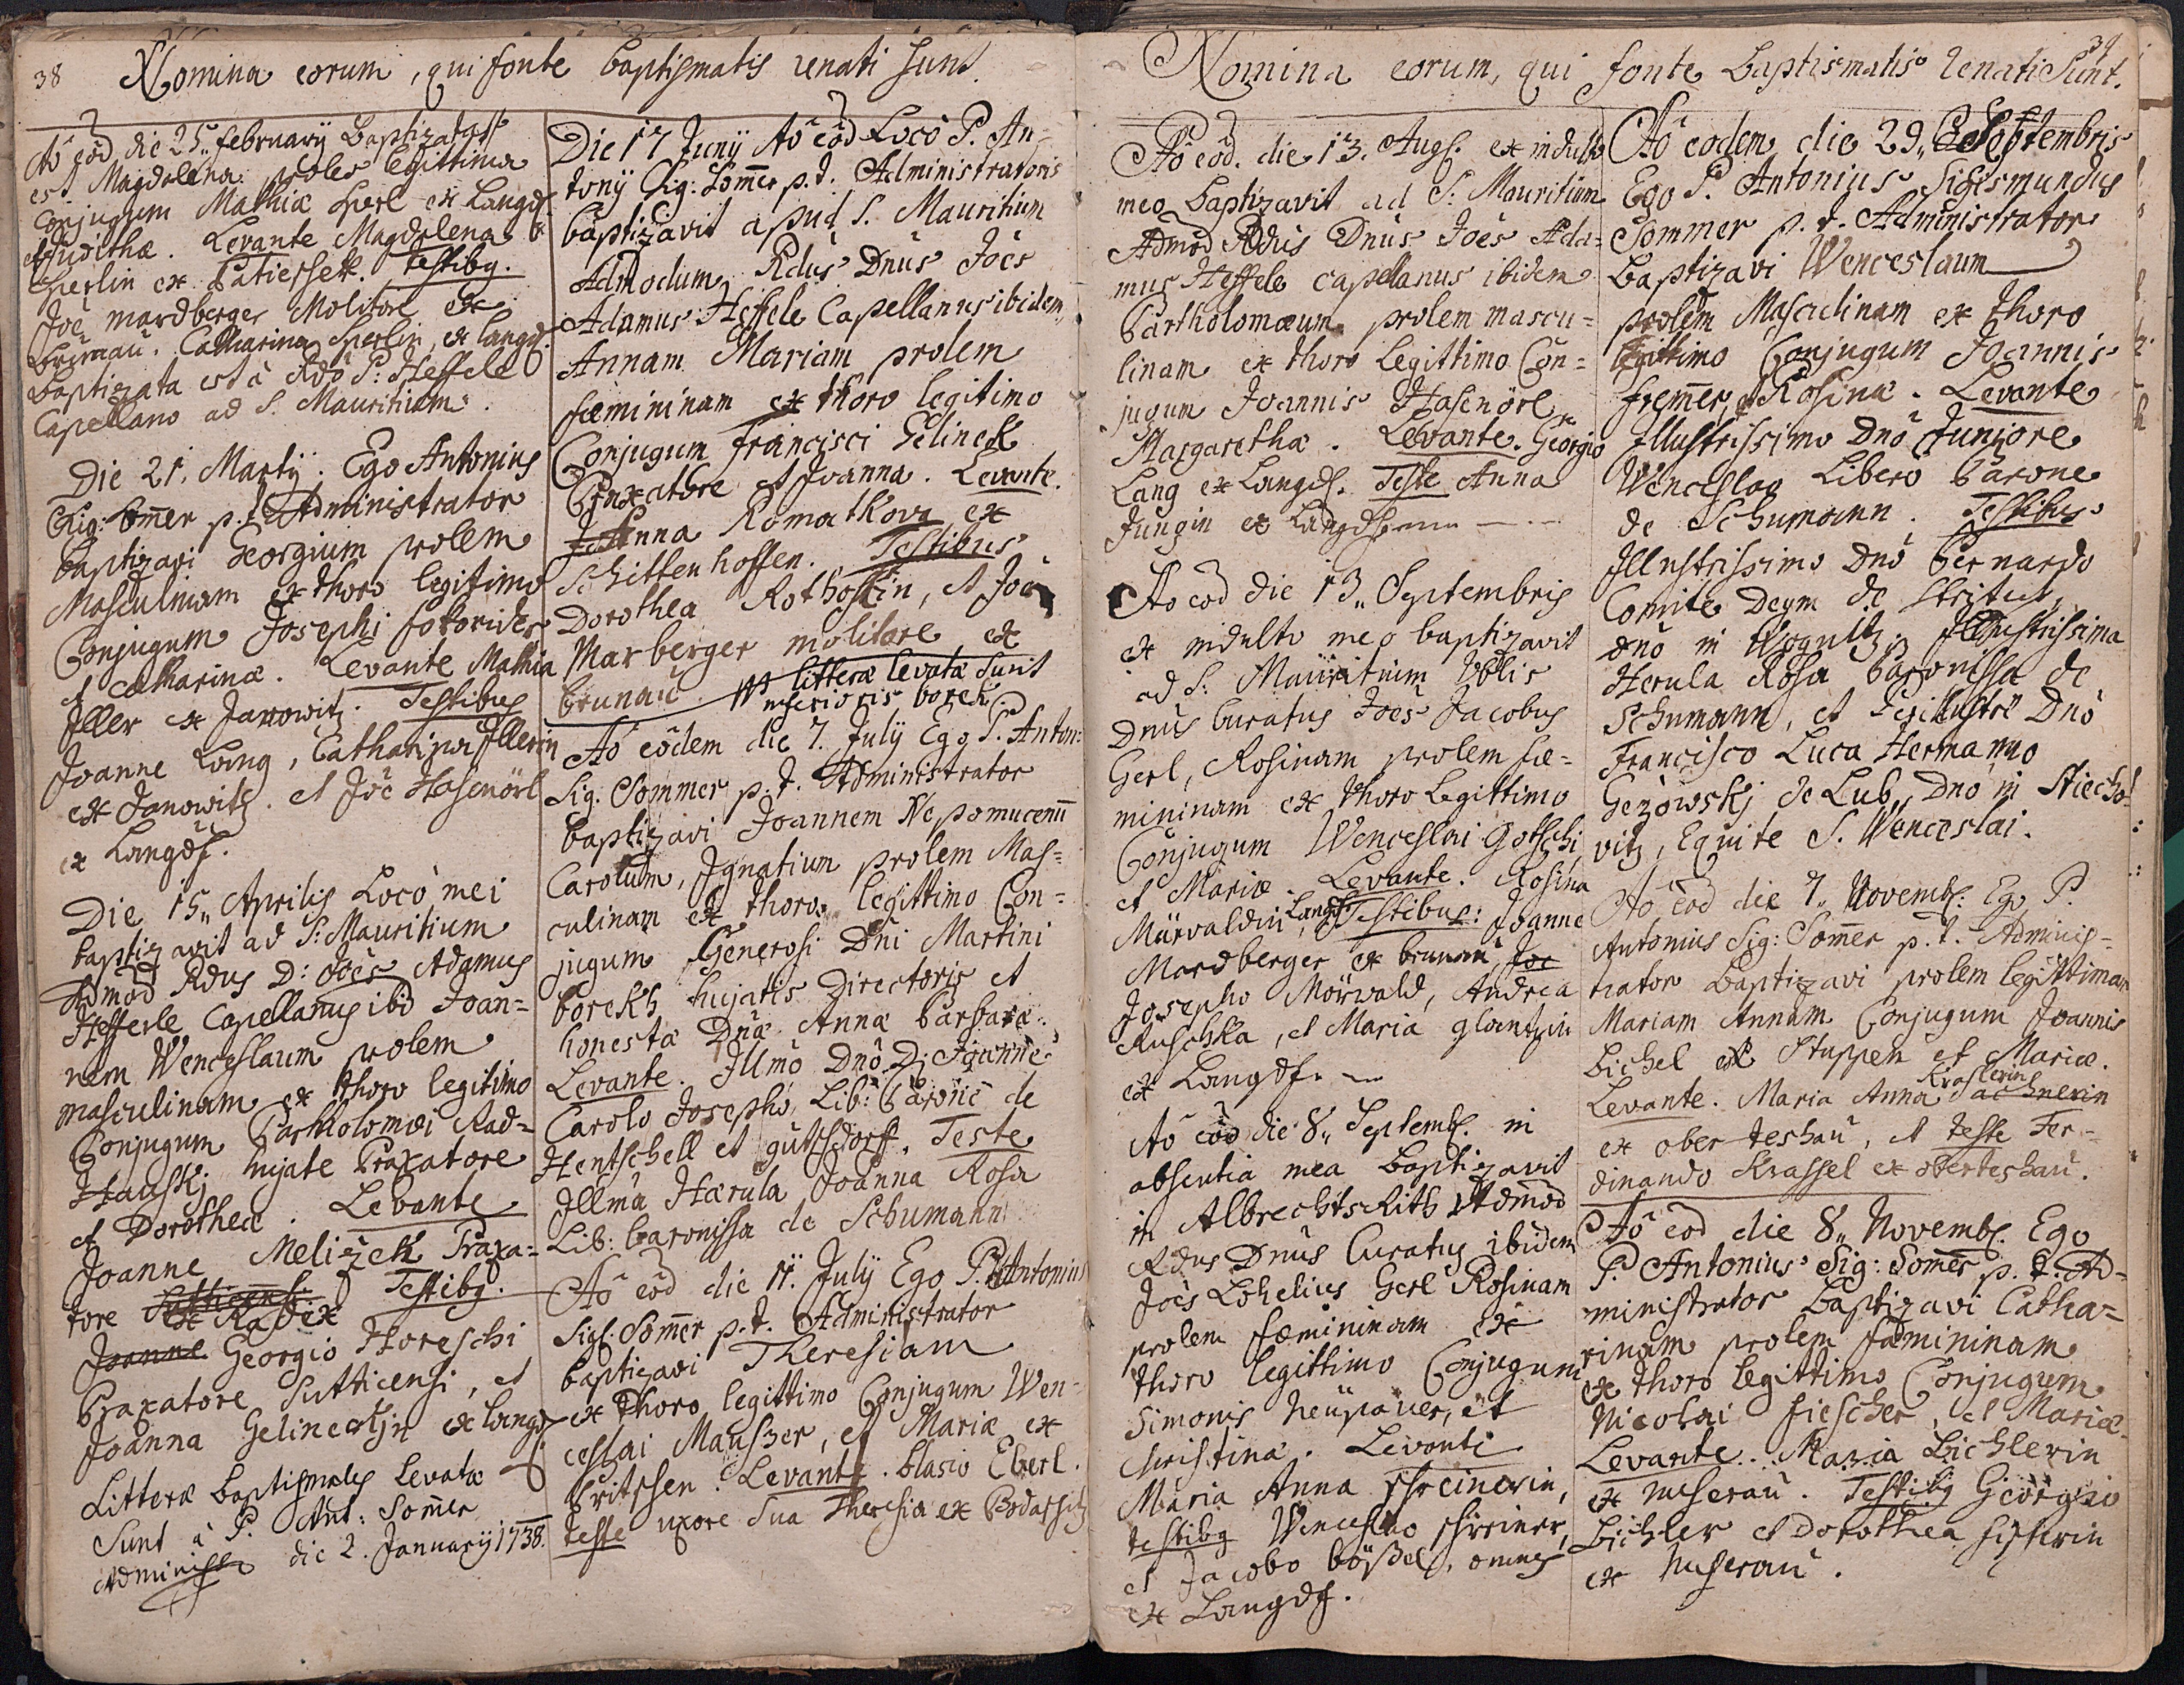 38 Nomina eorum, qui fonte baptismatis renati sunt.
Aō eōd die 25. february Baptizata
est Magdalena proles legittima
Conjugum Mathiæ Sperl ex Langdf.
et Judithæ. Levante Magdalena
Sperlin ex Patiessek. testibg.
Joē mardberger Molitore ex
brunaū. Catharina Sperlin, ex langdf.
baptizata est à Rdō P: Heffele
Capellano ad S. Mauritium.
Die 21. Martÿ. Ego Antonius
Sig: Som̄er p.t. Administrator
baptizavi Georgium prolem
Masculinam ex thoro legitimo
Conjugum Josephi
et Catharinæ. Levante Mathia
Iller ex Janowitz. Testibus
Joanne Lang, Catharina Illerin
ex Janowitz. et Joē Hasenörl
ex Langdf.
Die 15,, Aprilis Locō mei
baptizavit ad S: Mauritium
Admōd Rdus D: Joēs Adamus
Hefferle Capellanus ibid Joan=
nem Wenceslaum prolem
masculinam ex thoro legitimo
Conjugum Bartholomæi Rad=
Hanskj hujate Braxatore
et Dorotheæ. Levante
Joanne Melizek Praxa=
tore ex Radix Testibg.
Joanne Georgio Horeschi
Braxatore Sutticensi, et
Joanna Gelineckin ex Langdf
Litteræ baptismales levatæ
Sunt à P. Ant: Som̄er
Administr. die 2. January 1738.
Die 17 Junÿ Aō eōd Locō P. An=
tonÿ Sig: Som̄er p.t. Administratoris
baptizavit apud S. Mauritium
Admodum Rdus Dnus Joēs
Adamus Heffele Capellanus ibidem,
Annam Mariam prolem
fœmininam ex thoro legitimo
Conjugum francisci Gelinek
Braxatore et Joanna. Levante.
Anna Romatkova ex
Schittenhoffen. Testibus
Dorothea Rothoffin, et Joē
Marberger molitore ex
brunaū. litteræ levatæ sunt
inferioris borek.
Aō eōdem die 7. July Ego P. Anton:
Sig. Sommer p.t. Administrator
baptizavi Joannem Nepomucenū
Carolum, Ignatium prolem Mas=
culinam ex thoro legittimo Con=
jugum Generosi Dni Martini
borekh hujatis Directoris et
honestæ Dnæ Annæ barbaræ.
Levante. Illmō Dnō D: Joanne
Carolo Josepho, Lib: Barone de
Hentschell et gutsdorff. Teste
Illma Hærula Joanna Rosa
Lib: baronissa de Schumann
Aō eōd die 11. July Ego P. Antonius
Sigf: Som̄er p.t. Administrator
baptizavi Theresiam
ex thoro legittimo Conjugum Wen=
ceslai Mauszer, et Mariæ ex
Pritschen. Levante. blasio Eberl.
teste uxore sua Theresia ex
39
Nomina eorum, qui fonte baptismatis renati Sunt.
Aō eōd. die 13. Augs. ex indultō
meo baptizavit ad S: Mauritium
Admōd Rdus Dnus Joēs Ada=
mus Heffele capellanus ibidem
Bartholomæum prolem mascu=
linam ex thoro Legittimo Con=
jugum Joannis Hasenörl
Margarethæ. Levante. Georgio
Lang ex Langdf. Teste Anna
Jungin ex Langdf.
Aō eōd die 13,, Septembris
ex indulto meo baptizavit
ad S: Mauritium
Dnus Curatus Joēs Jacobus
Gerl, Rosinam prolem fœ=
mininam ex thoro Legittimo
Conjugum Wenceslai Gottschi
et Mariæ. Levante. Rosina
Mürvaldin, Langdf. Testibus: Joanne
Mardberger ex brunau Joe
Josepho Mörwald, Andrea
Ruschka, et Maria glantzin
ex Langdf.
Aō eōd die 8,, Septemb: in
absentia mea baptizavit
in Albrechtsrith Admōd
Rdus Dnus Curatus ibidem
Joēs Lohelius Gerl Rosinam
prolem fœmininam ex
thoro legittimo Conjugum
Simonis neüpauer, et
Christinæ. Levante
Maria Anna schreinerin,
testibg Wenceslao schreiner,
et Jacobo bößel, omnes
ex Langdf.
Aō eodem die 29,, Septembris
Ego P. Antonius Sigismundus
Sommer p.t. Administrator
baptizavi Wenceslaum
prolem Masculinam ex thoro
legittimo Conjugum Joannis
frem̄er, et Rosinæ. Levante
Illustrissimo Dnō Juniore
Wenceslao Libero barone
de Schumann. Testibus
Illustrissimo Dnō bernardo
Comite Deym de stritez,
dnō in Illustrissima
Herula Rosa baronissa de
Schumann, et Perillustri Dnō
Francisco Luca Hermanno
Gezowskj de Lub,, Dnō in Stiecho=
vitz, Equite S. Wenceslai.
Aō eōd die 7,, Novemb: Ego P.
Antonius Sig: Som̄er p.t. Adminis=
trator baptizavi prolem legittimam
Mariam Annam Conjugum Joannis
bichel ex Stuppen et Mariæ.
Levante. Maria Anna Krasslerin Sachnerin
ex ober teshaū, et teste Fer=
dinando Krassel ex oberteshaū.
Aō eōd die 8,, Novemb: Ego
P. Antonius Sig: Som̄er p.t. Ad=
ministrator baptizavi Catha=
rinam prolem fœmininam
ex thoro legittimo Conjugum
Nicolai fiescher, et Mariæ
Levante. Maria bichlerin
ex nuserau. Testibg Georgio
bichler et Dorothea fischerin
ex nuserau.